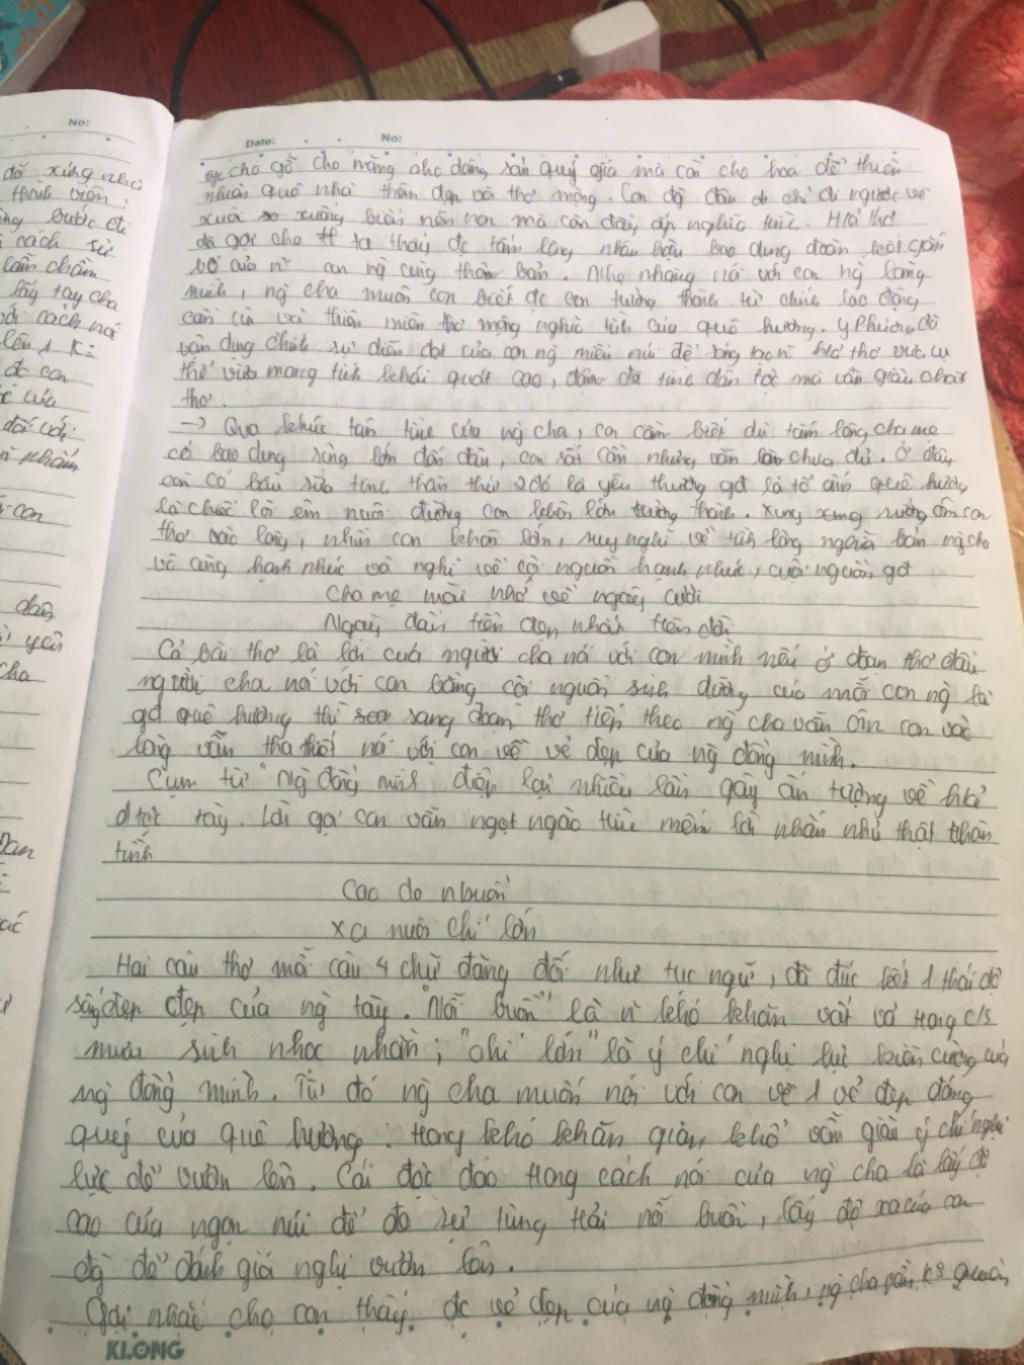 No:
đổ xứng nhà
thành viên,
ng bước đi
cách sử
lẫm chẫm
lấy tay cha
với cách nói
lên 1 k
đ con
của
đối với
con
dân
yêu
cha
Date: No:
cho gỗ cho măng cho dòng sản quý giá mà còn cho hoa để thiên
nhiên quê nhà thêm đẹp và thơ mộng. Con độ đâu chỉ đi ngược về
xuôi xuống biển non mà còn đầy ắp nghĩa tình. Hai thơ
đã gợi cho ta thấy đc tấm lòng nhân hậu bao dung đoàn kết gắn
bó của n con ng cùng thôn bản. Nhẹ nhàng nói với con ng lòng
mình, ng cha muốn con biết đc con trưởng thành từ chính lao động
cần cù và thiên nhiên thơ mộng nghĩa tình của quê hương. Y Phương đã
vận dụng chính sự diễn đạt của con ng miền núi để thơ vừa cụ
thể vừa mang tính khái quát cao, đậm đà tính dân tộc mà vẫn giàu chất
thơ.
→ Qua khúc tâm tình của ng cha, con cần biết dù tấm lòng cha mẹ
có bao dung rộng lớn đến đâu, con rất cần nhưng vẫn chưa đủ. Ở đây
còn có bầu sữa tinh thần thứ 2 đó là yêu thương gđ là tổ ấm quê hương
là chiếc lô em nuôi dưỡng con khôn lớn trưởng thành. sung sướng ôm con
thơ vào lòng, nhìn con khôn lớn, suy nghĩ về tình làng người bản ng cha
vô cùng hạnh phúc và nghĩ về cội nguồn hạnh phúc, cội nguồn gđ
Cha mẹ mãi nhớ về ngày cưới
Ngày đầu tiên đẹp nhất trên đời
Cả bài thơ là lời của người cha nói với con mình nếu ở đoạn thơ đầu
người cha nói với con bằng cội nguồn sinh dưỡng của mỗi con ng là
gđ quê hương thì sao sang đoạn thơ tiếp theo ng cha vẫn ôm con vào
lòng vẫn tha thiết nói với con về vẻ đẹp của ng đồng mình.
Cụm từ "Ng đồng mình điệp lại nhiều lần gây ấn tượng về
dtộc tày. Lời gọi con vẫn ngọt ngào trìu mến lời nhắn nhủ thật chân
tình
Cao đo nỗi buồn
xa nuôi chí lớn
Hai câu thơ mỗi câu 4 chữ đăng đối như tục ngữ, đã đúc kết 1 thái độ
sống đẹp đẹp của ng tày. "Nỗi buồn" là n khó khăn vất vả trong c/s
mưu sinh nhọc nhằn; "chí lớn" là ý chí nghị lực kiên cường của
ng đồng mình. Từ đó ng cha muốn nói với con về 1 vẻ đẹp đáng
quý của quê hương: trong khó khăn gian khổ vẫn giàu ý chí nghị
lực để vươn lên. Cái độc đáo trong cách nói của ng cha là lấy độ
cao của ngọn núi để đo sự từng trải nỗi buồn, lấy độ xa của con
đg để đánh giá nghị vươn lên.
Gợi nhắc cho con thấy đc vẻ đẹp của ng đồng mình, ng cha còn
KLONG